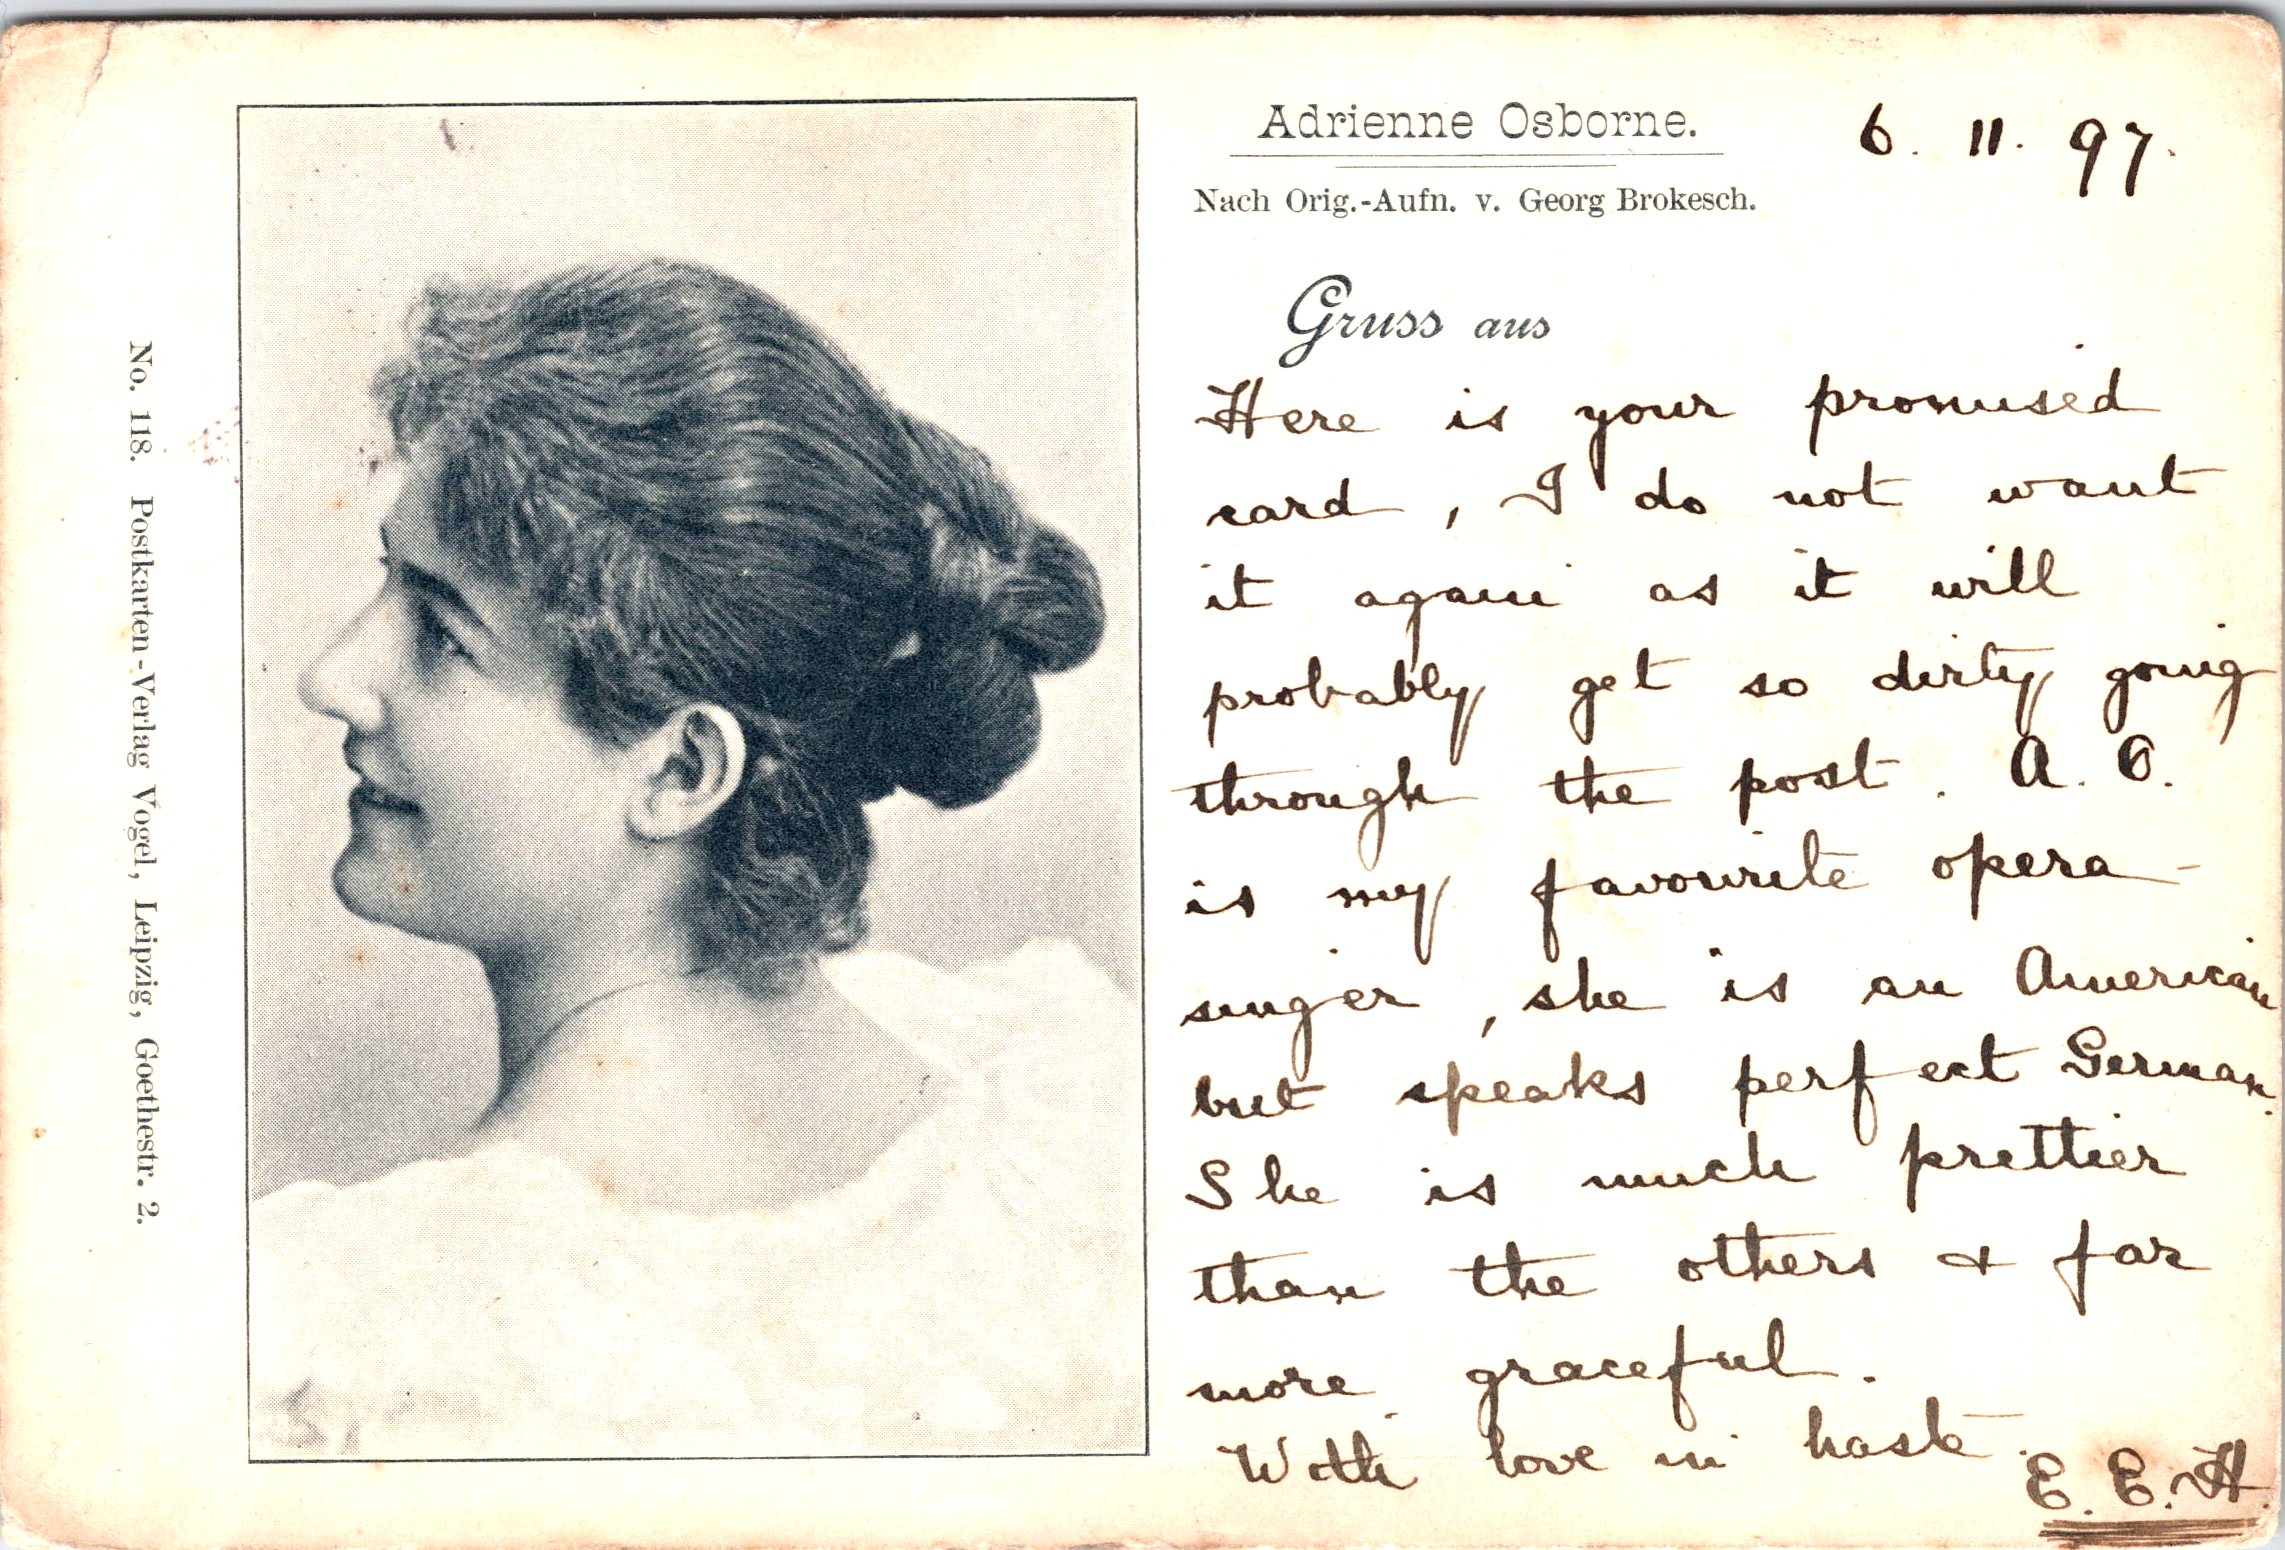 Adrienne Osborne.
6. 11. 97.
Nach Orig.-Aufn. v. Georg Brokesch.
Gruss aus
Here is your promised
card, I do not want
it again as it will
probably get so dirty going
through the post. A. O.
is my favourite opera-
singer, she is an American
but speaks perfect German.
She is much prettier
than the others & far
more graceful.
With love in haste.
E. E. H.
No. 118. Postkarten-Verlag Vogel, Leipzig, Goethestr. 2.